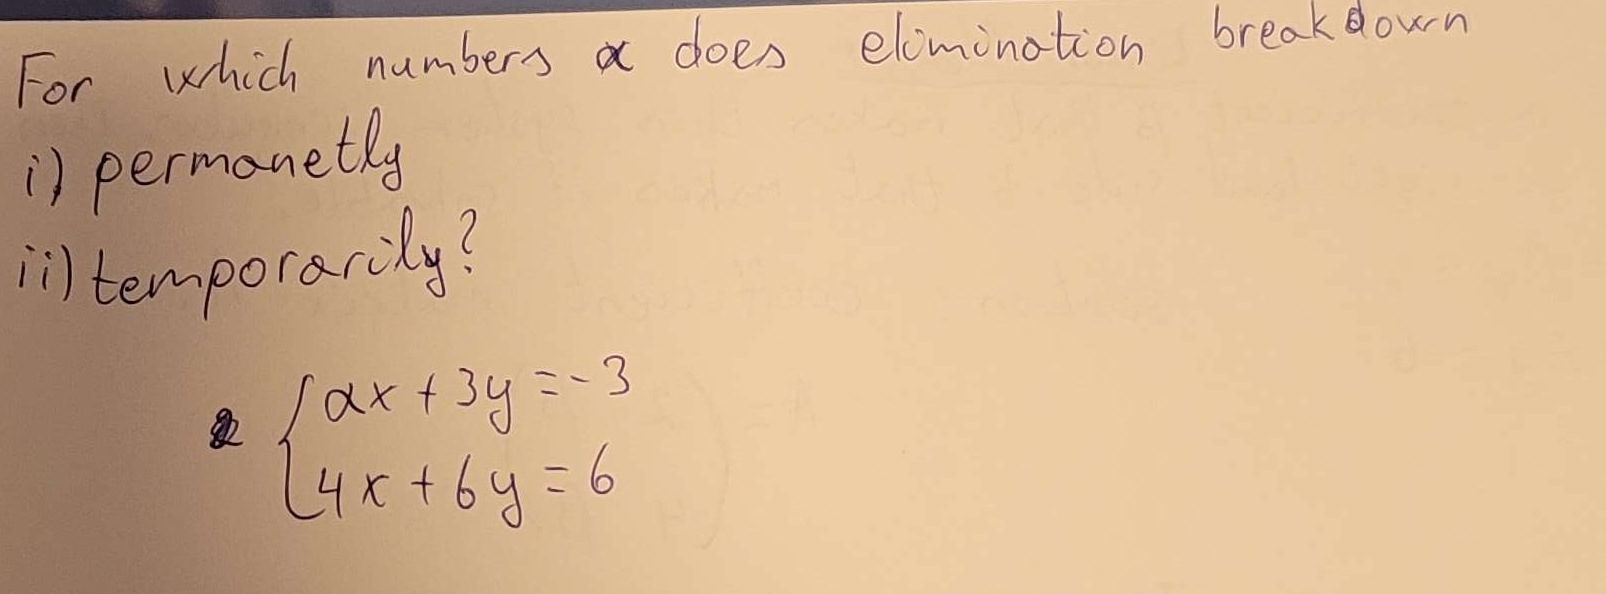 For which numbers a does elimination breakdown
i) permanetly
ii) temporarily?
ax + 3y = -3
4x + 6y = 6